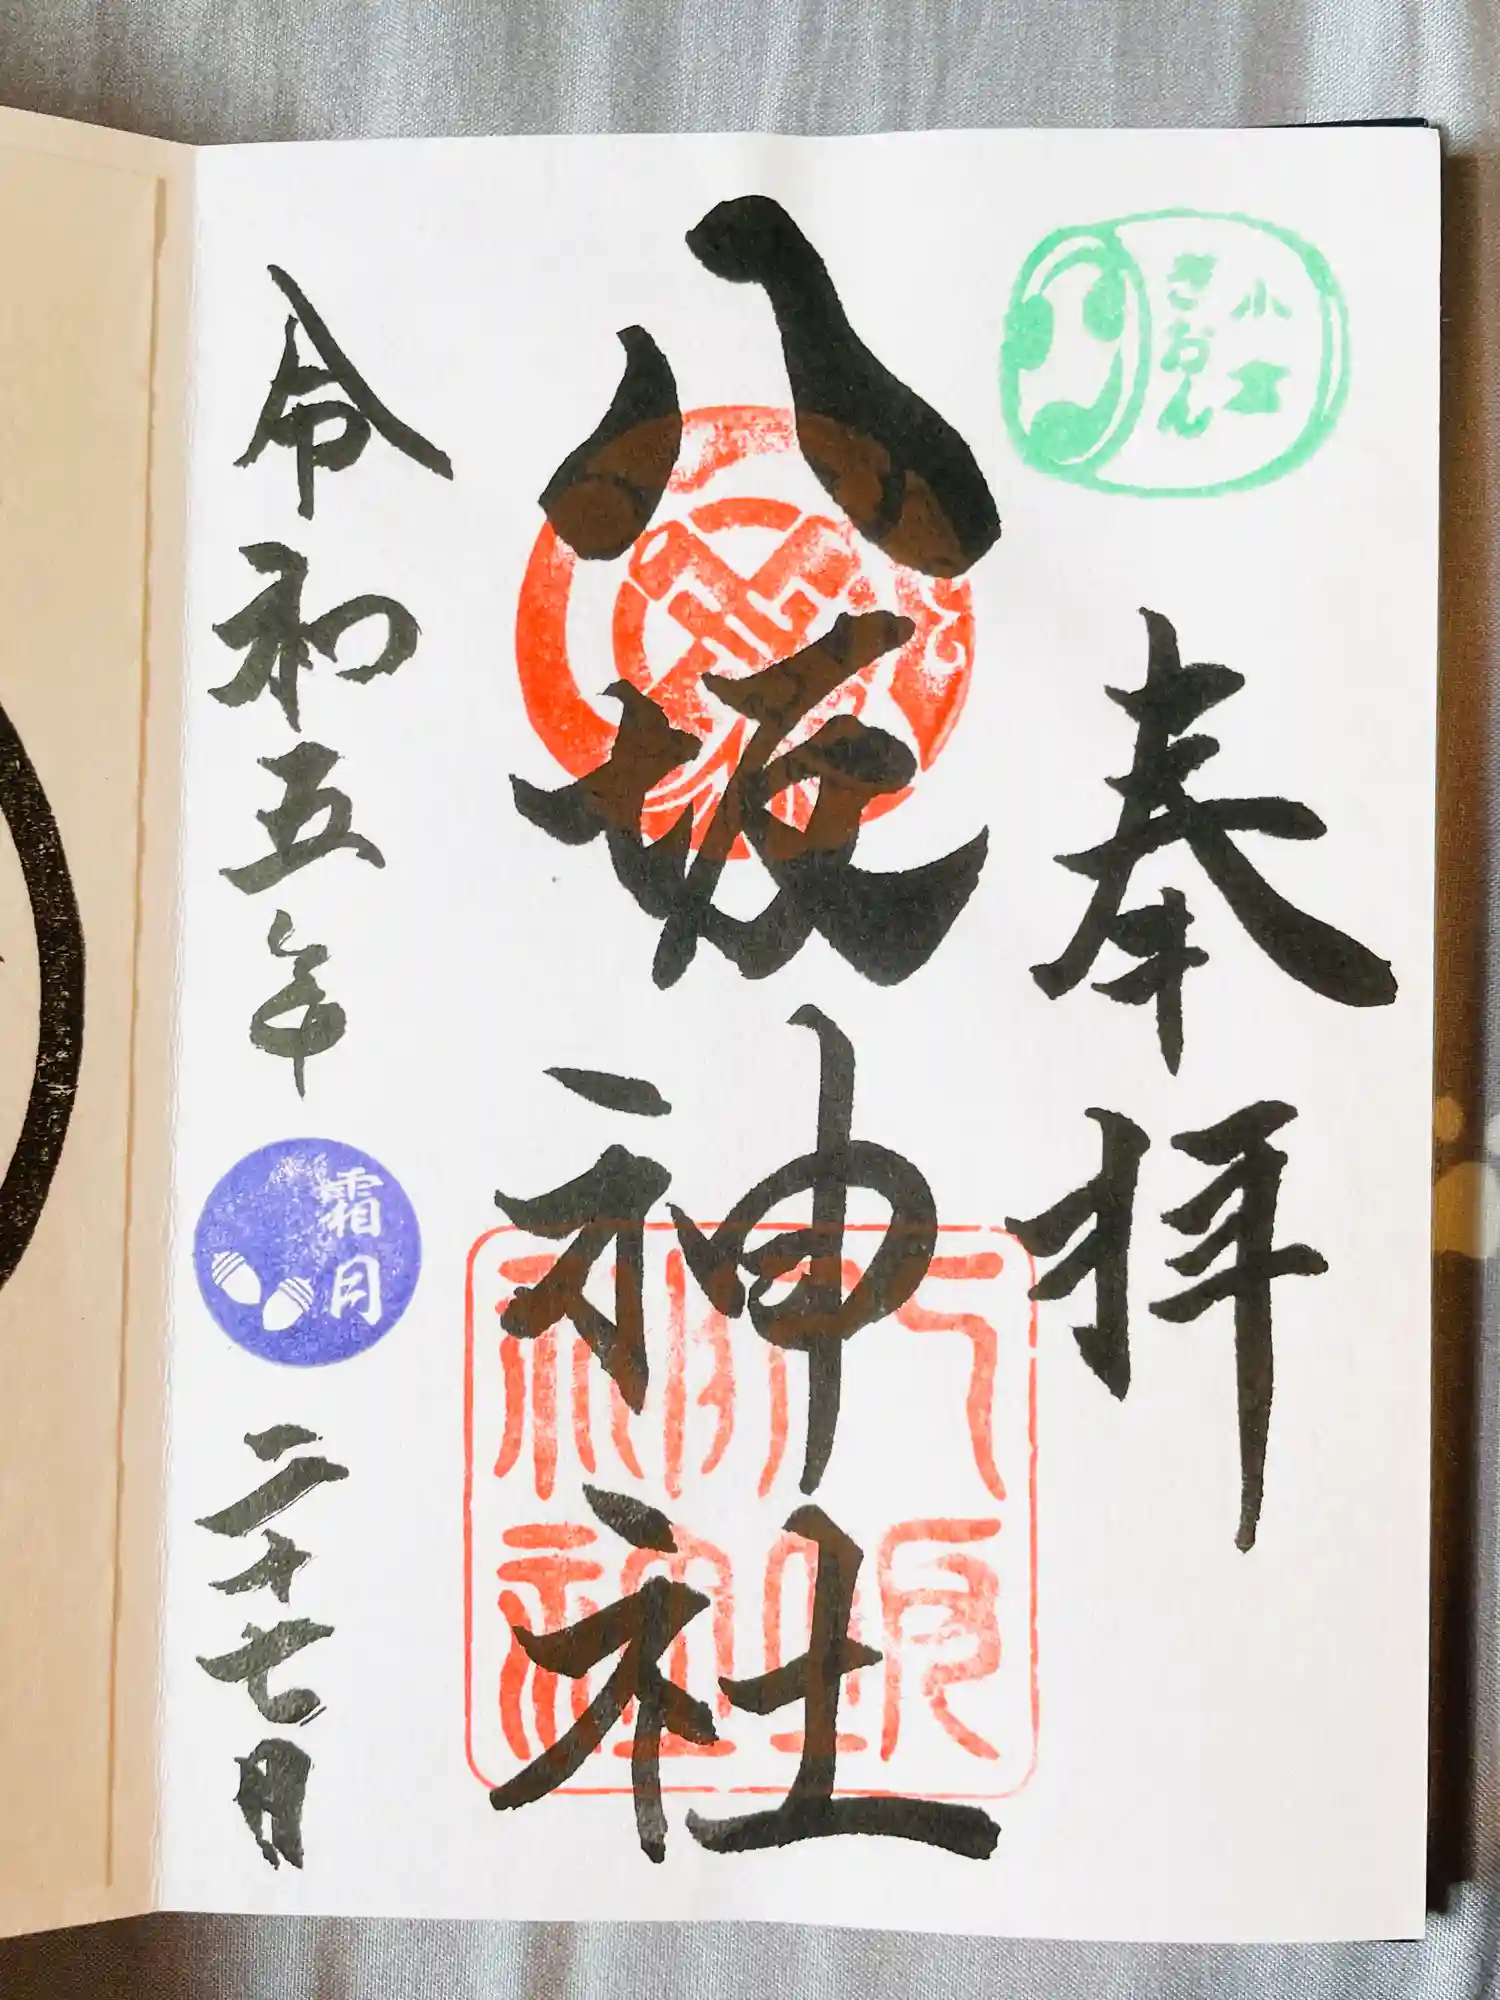 小倉
ぎおん
奉拝
八坂神社
八坂
神社
令和五年
霜月
二十七日